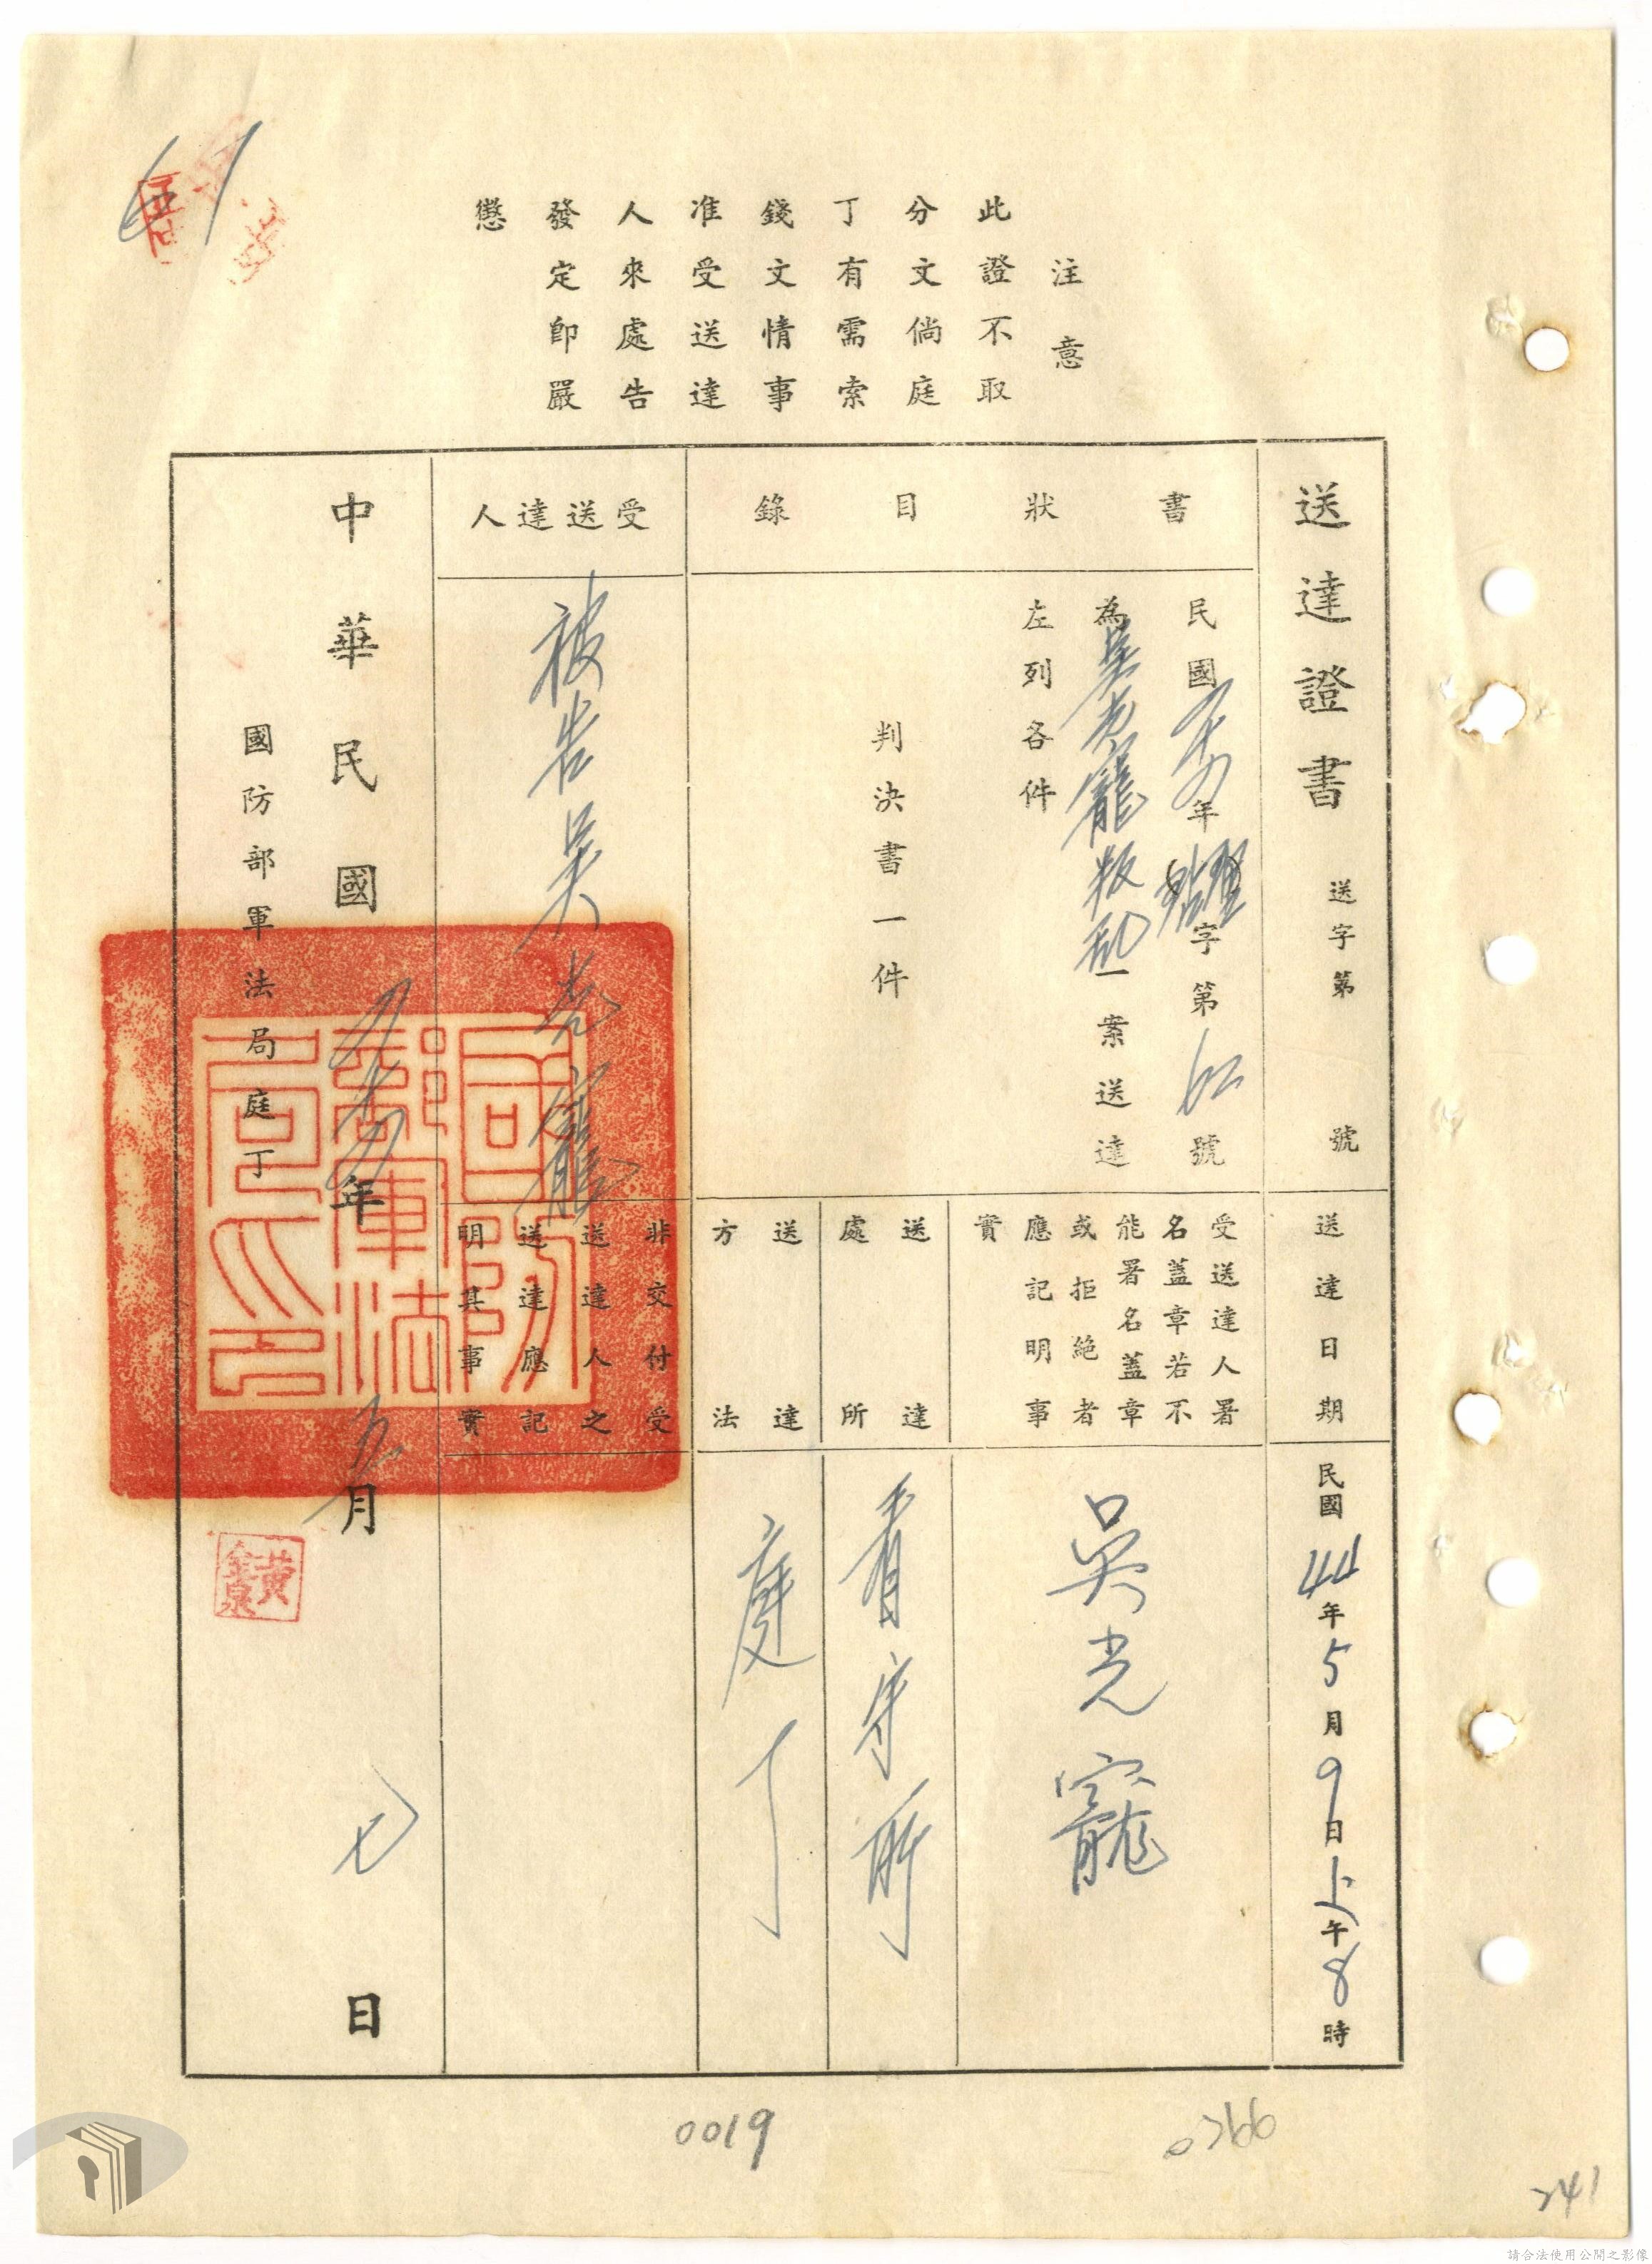 注意
此證不取
分文倘庭
丁有需索
錢文情事
准受送達
人來處告
發定即嚴
懲
送達證書 送字第 號
送達日期
民國44年5月9日上午8時
書狀目錄
民國年字第 號
為吳光寵叛乱一案送達
左列各件
判決書一件
受送達人署
名蓋章若不
能署名蓋章
或拒絕者
應記明事
實
吳光寵
送達
處所
看守所
送達
方法
庭丁
受送達人
被告吳光寵
非交付受
送達人之
送達應記
明其事實
中華民國四十四年五月七日
國防部軍法局庭丁
黃金泉
國防部軍法局印
0019
0266
241
請合法使用公開之影像